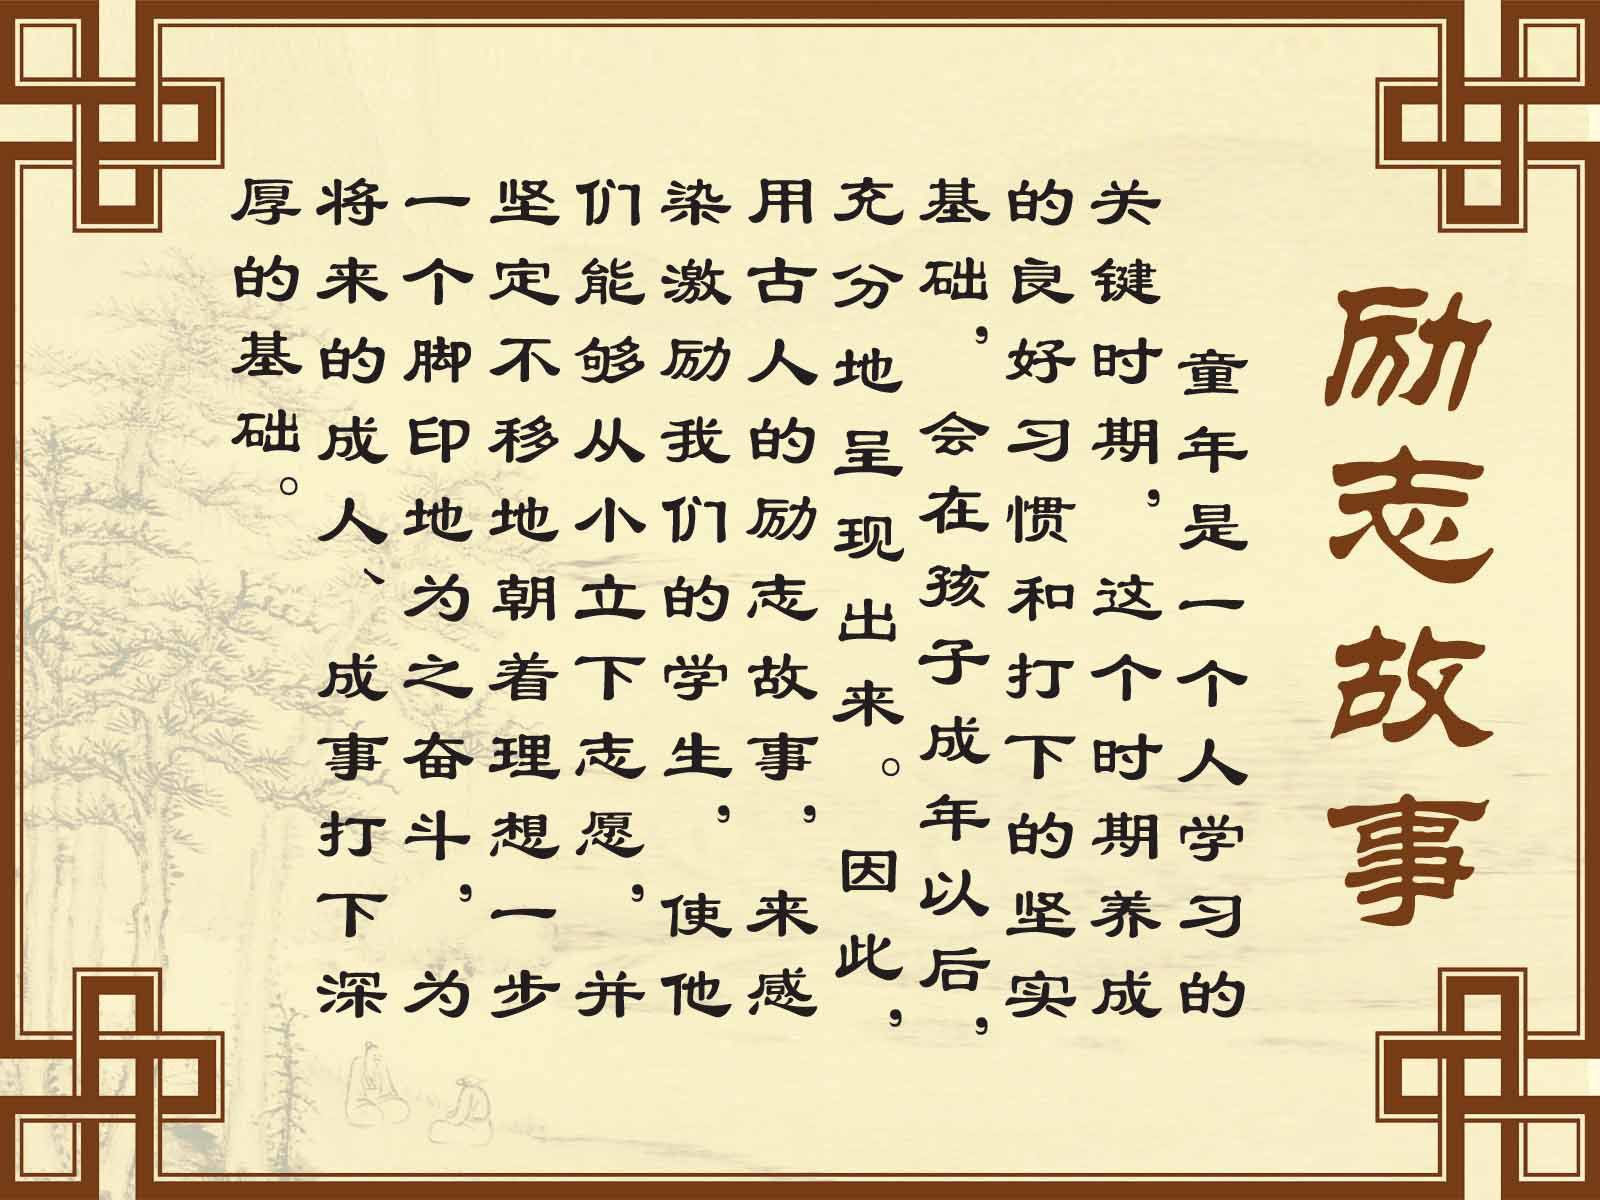 励志故事
童年是一个人学习的
关键时期，这个时期养成
的良好习惯和打下的坚实
基础，会在孩子成年以后，
充分地呈现出来。因此，
用古人的励志故事，来感
染激励我们的学生，使他
们能够从小立下志愿，并
坚定不移地朝着理想一步
一个脚印地为之奋斗，为
将来的成人、成事打下深
厚的基础。